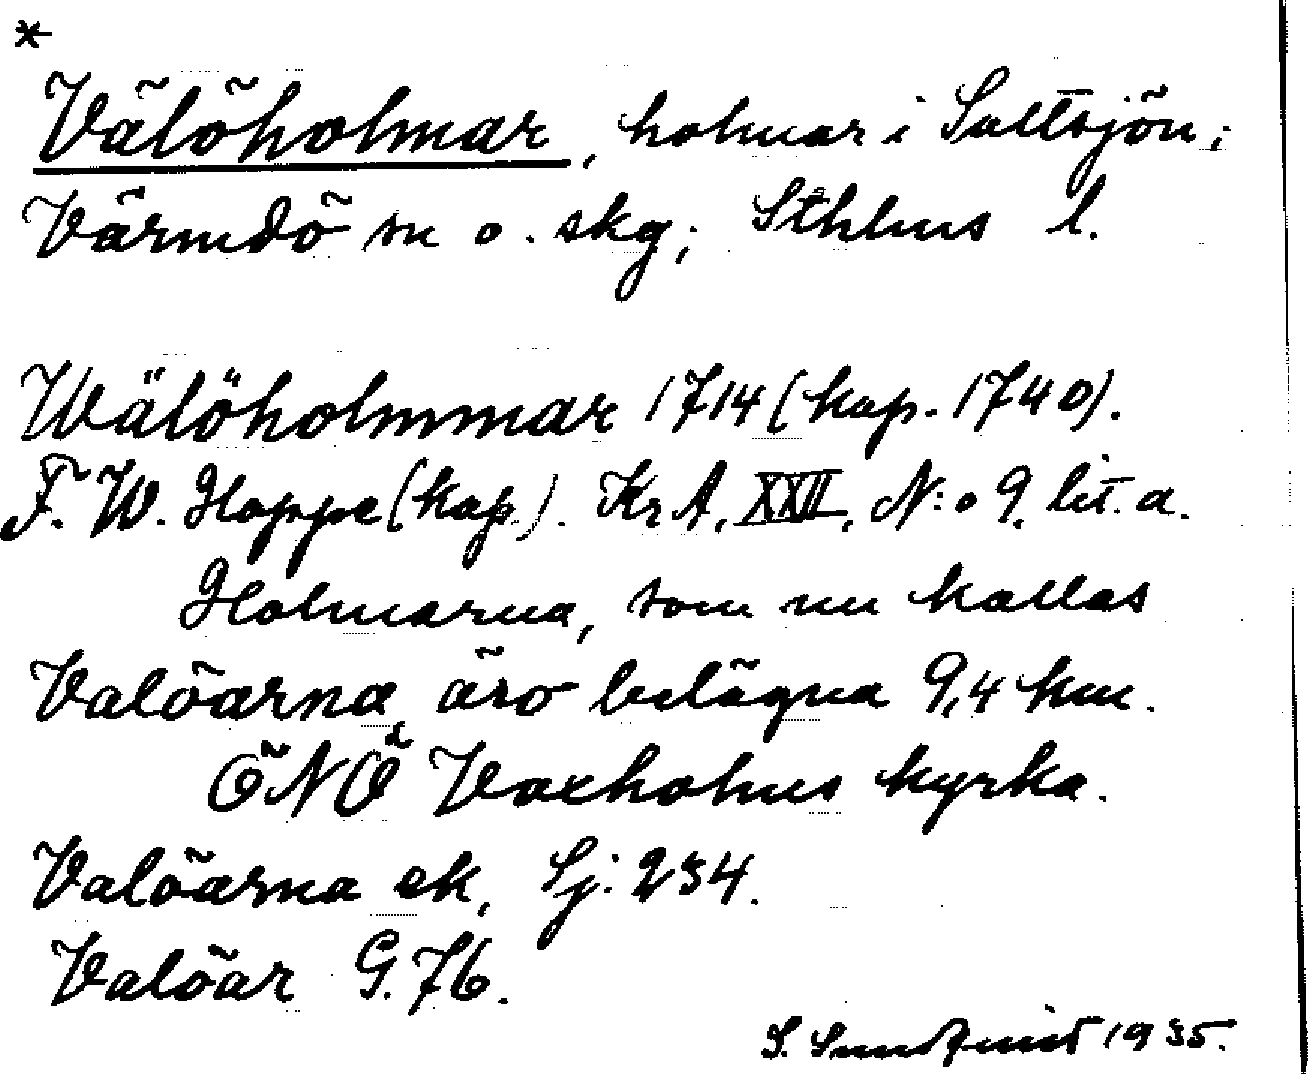 *
Välöholmar, holmar i Saltsjön;
Värmdö sn o. skg; Sthlms l.
Wälöholmmar 1714 (kop. 1740).
F. W. Hoppe (kop.). KrA, XXII, N:o 9, lit. a.
Holmarna, som nu kallas
Valöarna, äro belägna 9,4 km.
ÖNÖ Vaxholms kyrka.
Valöarna ek, Sj: 234.
Valöar G. 76.
S. Sundquist 1935.